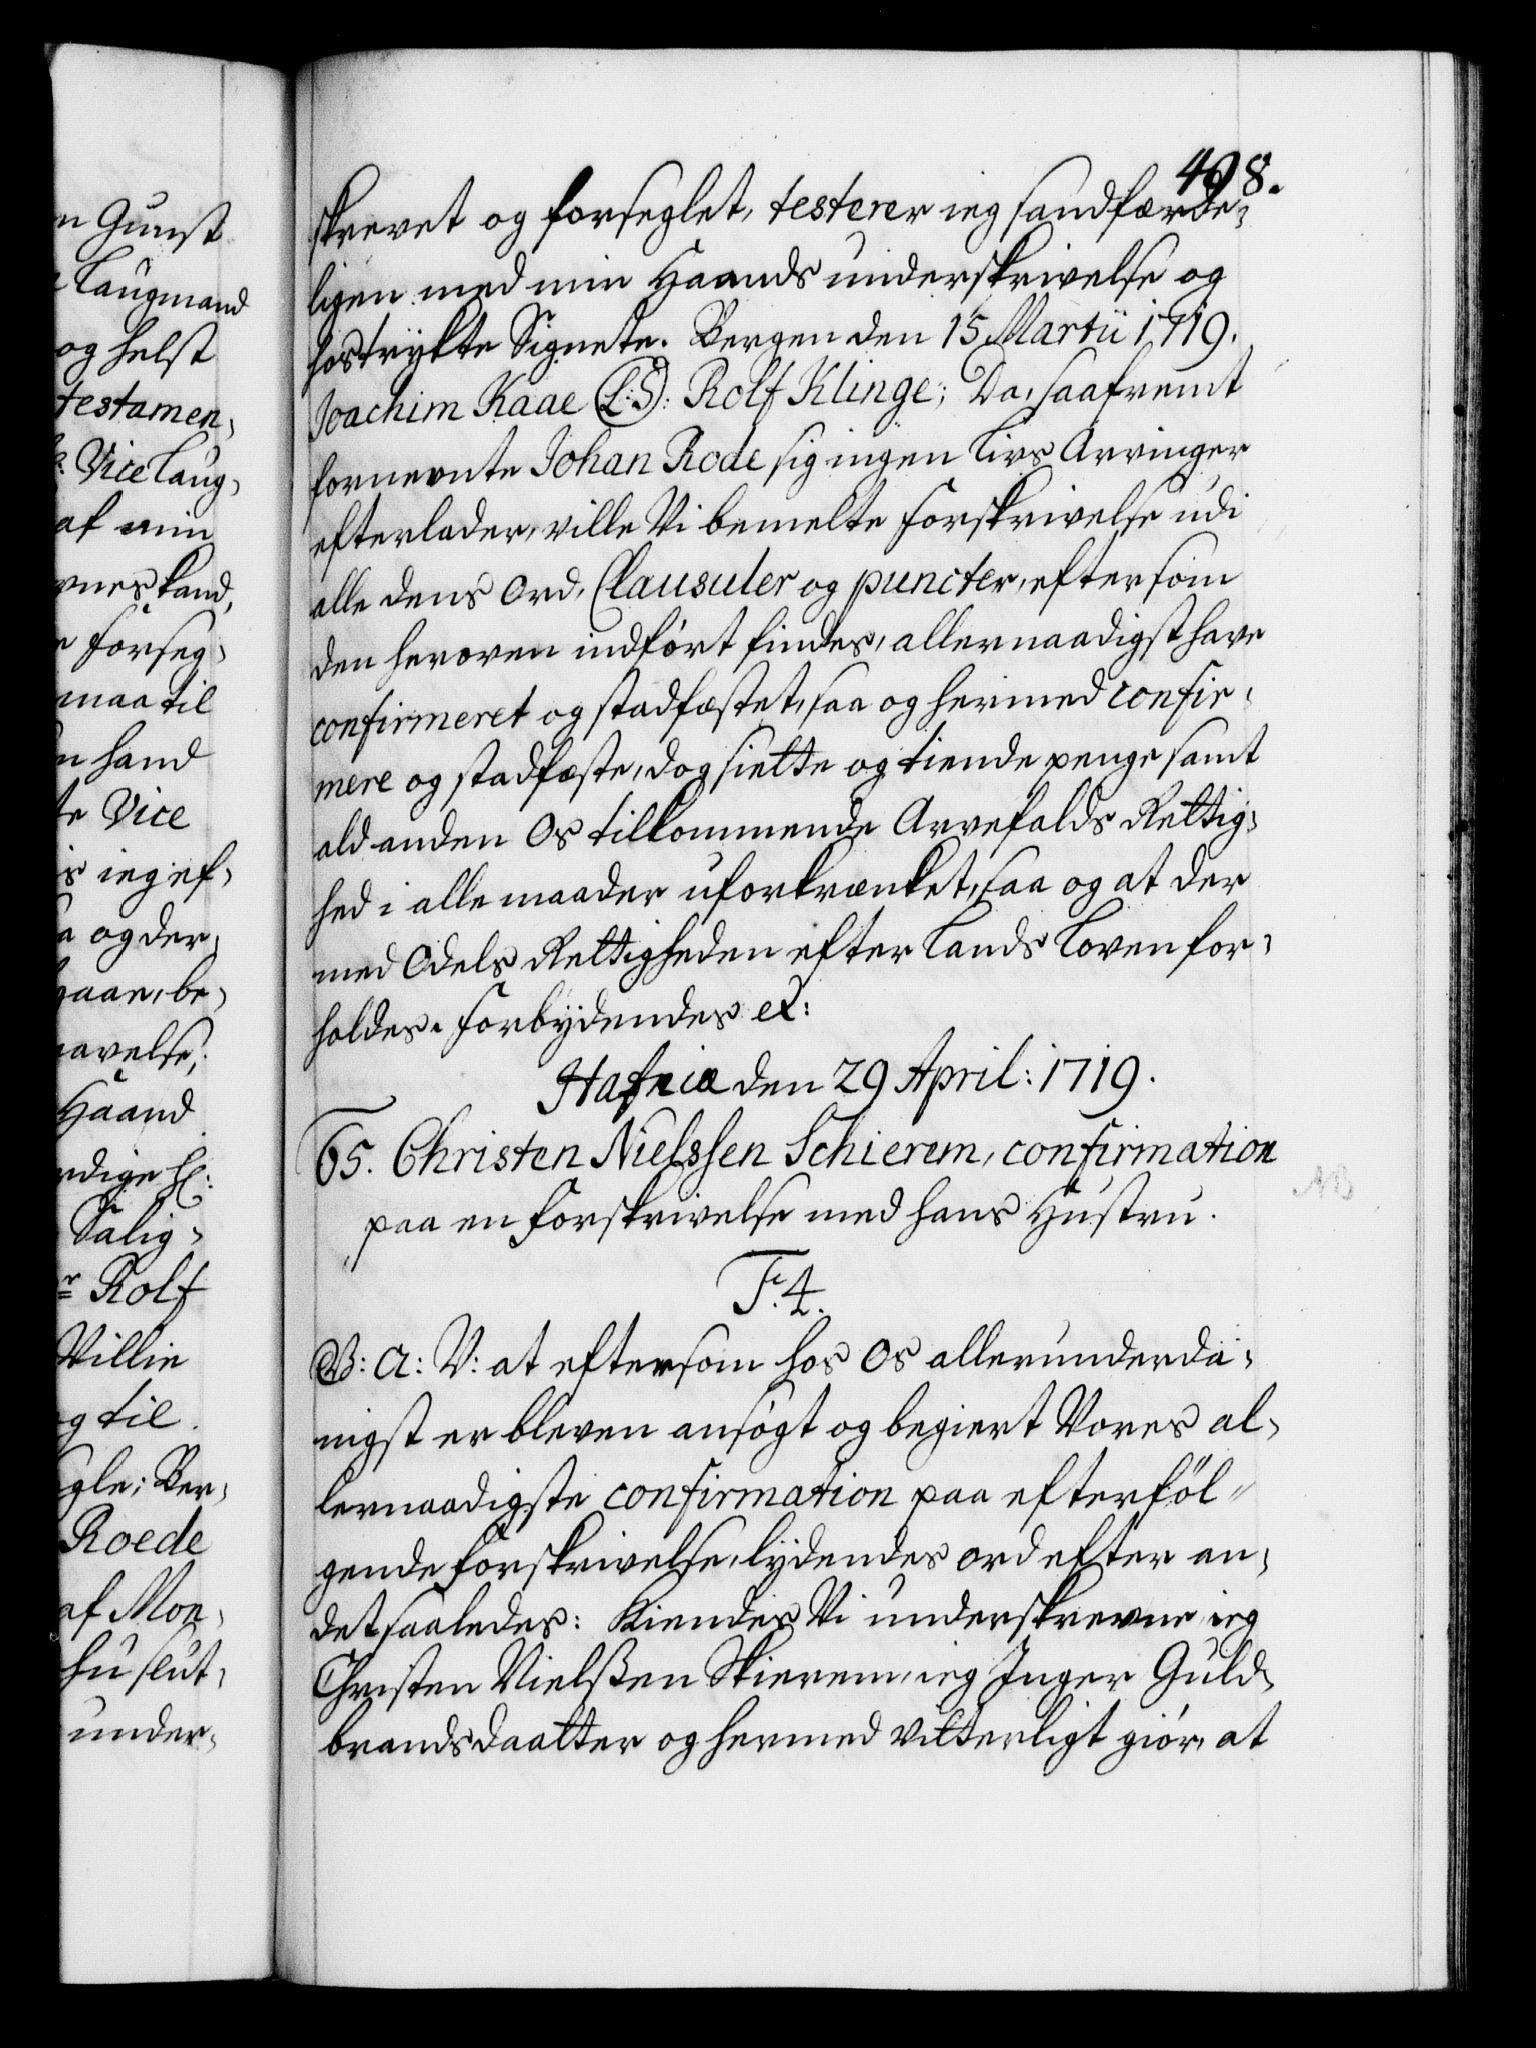 n Gunst
Laugmand
og helst
testamen,
Vice Laug,
af min
vnes kand,
forseg,
maa til
n hand
te Vice
is ieg ef,
a og der,
gaae, be,
navelse,
Haand
rdige H:
Salig,
Rolf
Villie
g til.
gle; Ber,
Roede
af Mon,
hu slut,
under,
498.
skrevet og forseglet, testerer ieg sandfærde,
ligen med min Haands underskrivelse og
hostrykte Signete. Bergen den 15 Martii 1719.
Joachim Kaae (L:S): Rolf Klinge; Da, saafremt
fornevnte Johan Rode sig ingen Livs Arvinger
efterlader, ville Vi bemelte Forskrivelse udi
alle dens Ord, Clausuler og puncter, eftersom
den heroven indført findes, allernaadigst have
confirmeret og stadfæstet, saa og hermed confir,
mere og stadfæste, dog siette og tiende penge samt
ald anden Os tilkommende Arvefalds Rettig,
hed i alle maader uforkrænket, saa og at der
med Odels Rettigheden efter Lands Loven for,
holdes. Forbydendes &:
Hafniæ den 29 April: 1719.
65. Christen Nielssen Schierem, confirmation
paa en Forskrivelse med hans Hustru.
NB
F. 4.
G: A: V: at eftersom hos Os allerunderda,
nigst er bleven ansøgt og begiert Vores al,
lernaadigste confirmation paa efterføl,
gende Forskrivelse, lydendes ord efter an,
det saaledes: Kiendes Vi underskrevne ieg
Christen Nielssen Skierem, ieg Inger Guld,
brandsdaatter og hermed vitterligt giør, at